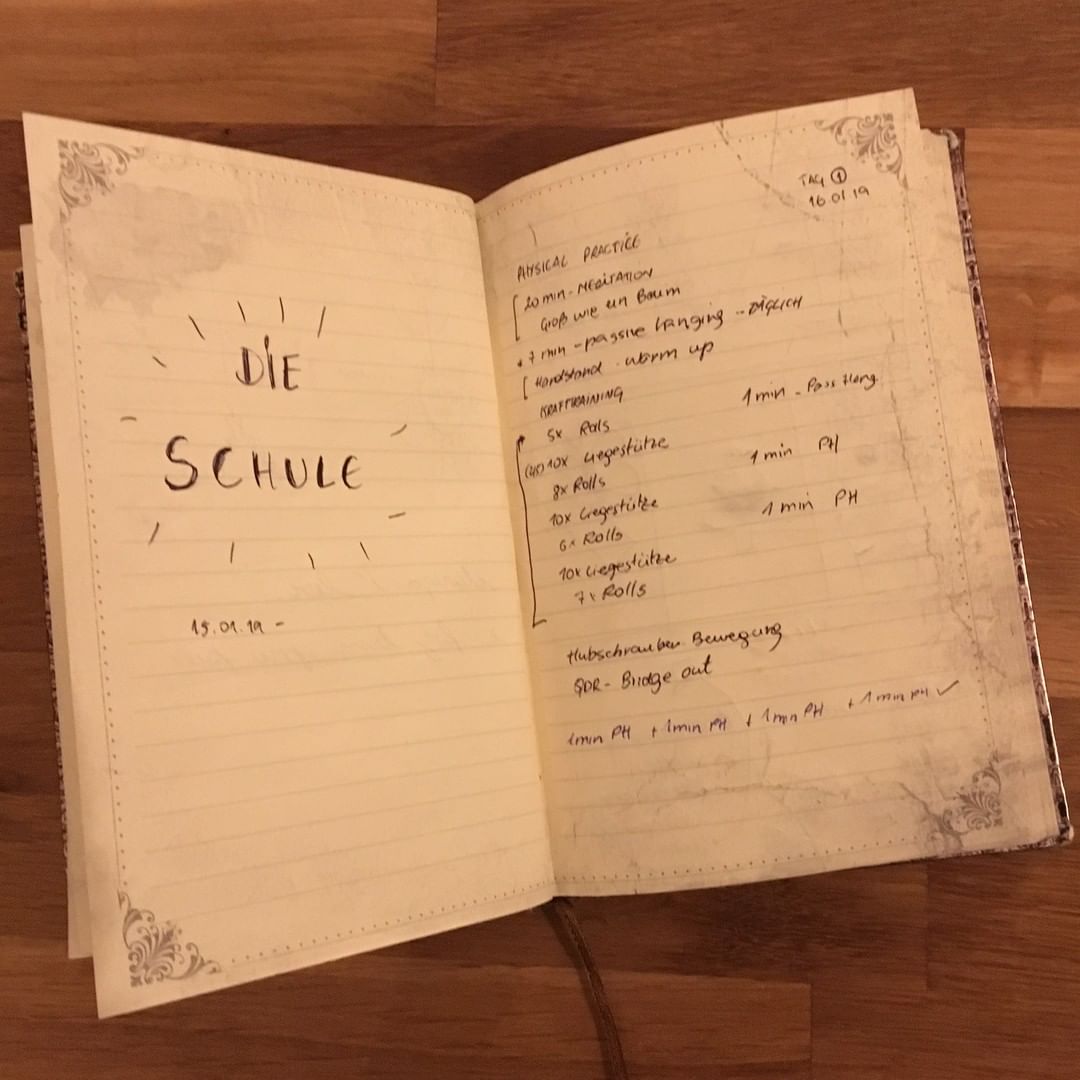 DIE
SCHULE
15.01.19 -
TAG ①
16 01 19
PHYSICAL PRACTICE
20 min - MEDITATION
Groß wie ein Baum
• 7 min - passive hanging - TÄGLICH
Handstand - warm up
KRAFTTRAINING
1 min - Pass Hang
5x Rolls
(45) 10x Liegestütze
1 min PH
8x Rolls
10x Liegestütze
1 min PH
6x Rolls
10x Liegestütze
7x Rolls
Hubschrauber Bewegung
QDR - Bridge out
1min PH + 1min PH + 1min PH + 1min PH ✓